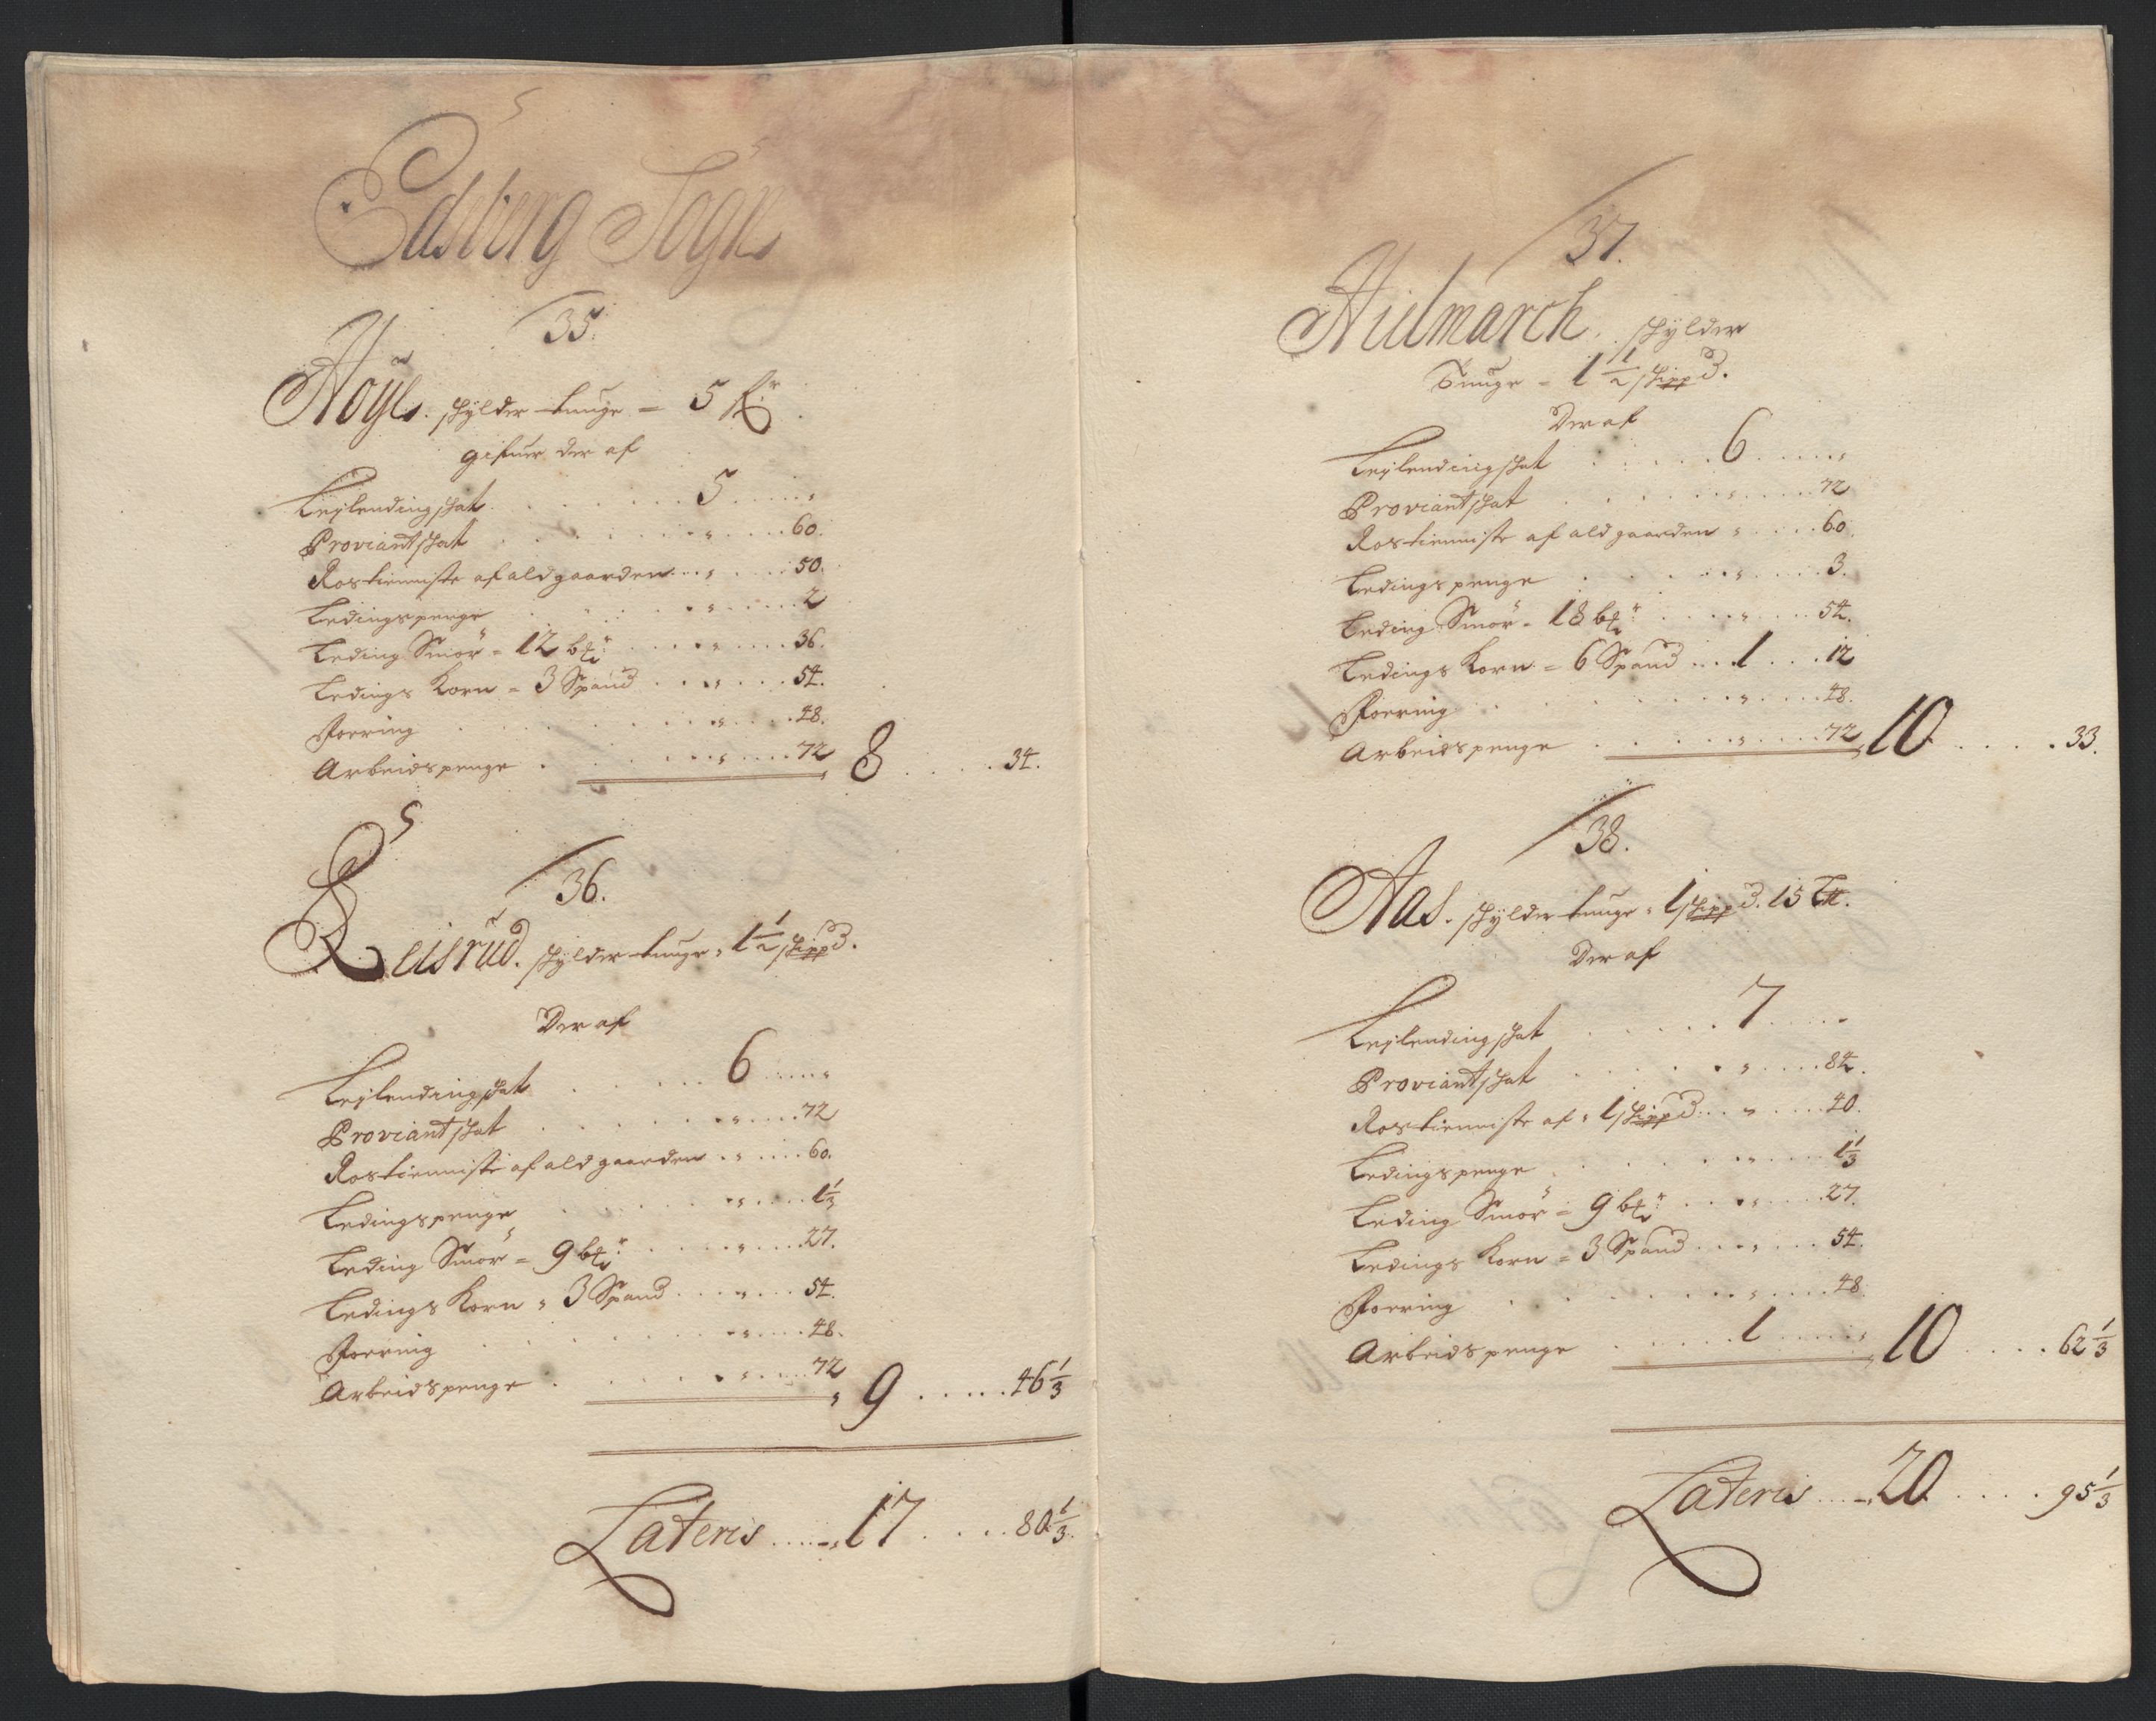 Edsberg Sogn
35.
Höyle. skylder tunge = 5 
gifuer der af
Leÿlendingskat . . . . . . . 5 . . . . "
Proviantskat . . . . . . . " . . . . 60.
Rostienniste af ald gaarden . . " . . . . 50.
Ledingspenge . . . . . . . " . . . . 2
Leding Smör = 12 . . . . " . . . . 36.
Ledings Korn = 3 Spand . . . " . . . . 54.
Foering . . . . . . . " . . . . 48.
Arbeidspenge . . . . . . . " . . . . 72 " 8 . . . . . 34.
36.
Reisrud. skylder tunge = 1 1/2 skippd.
Der af
Leÿlendingskat . . . . . . 6 . . . . "
Proviantskat . . . . . . . " . . . . 72
Rostienniste af ald gaarden . . " . . . . 60.
Ledingspenge . . . . . . . " . . . . 1 1/3
Leding Smör = 9 . . . . " . . . . 27.
Ledings Korn = 3 Spand . . . " . . . 54.
Foering . . . . . . . " . . . . 48.
Arbeidspenge . . . . . . . " . . . . 72 " 9 . . . . . 46 1/3
Lateris . . . . " 17 . . . . 80 1/3.
37.
Hielmarch. skylder
Tunge = 1 1/2 skippd.
Der af
Leÿlendingskat . . . . . 6 . . . . . "
Proviantskat . . . . . . . " . . . . 72
Rostienniste af ald gaarden " . . . . 60.
Ledingspenge . . . . . . . " . . . . 3.
Leding Smör = 18 . . . . " . . . . 54.
Ledings Korn = 6 Spand . . . 1 . . . 12
Foering . . . . . . . " . . . . 48.
Arbeidspenge . . . . . . . " . . . . 72 " 10 . . . . . 33.
38.
Aas. skylder tunge = 1 skippd. 15 .
Der af
Leÿlendingskat . . . . . 7 . . . . "
Proviantskat . . . . . . " . . . . 84.
Rostienniste af = 1 skippd . . " . . . . 40.
Ledingspenge . . . . . . . " . . . . 1 1/3
Leding Smör = 9 . . . . " . . . . 27.
Ledings Korn = 3 Spand . . . " . . . . 54.
Foering . . . . . . . " . . . . 48.
Arbeidspenge . . . . . 1 . . . . " " 10 . . . . 62 1/3
Lateris . . . . " 20 . . . . . 95 1/3